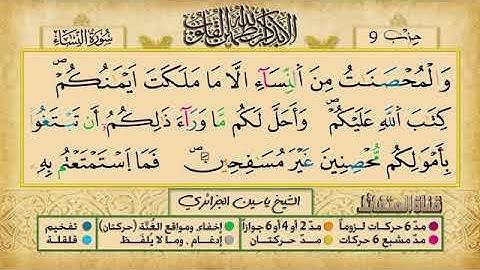 حزب 9
ألا بذكر الله تطمئن القلوب
سورة النساء
وَالْمُحْصَنَٰتُ مِنَ اَ۬لنِّسَآءِ الَّا مَا مَلَكَتَ اَيْمَٰنُكُمْۖ
كِتَٰبَ اَ۬للَّهِ عَلَيْكُمْۖ وَأَحَلَّ لَكُم مَّا وَرَآءَ ذَٰلِكُمُۥٓ أَن تَبْتَغُواْ
بِأَمْوَٰلِكُم مُّحْصِنِينَ غَيْرَ مُسَٰفِحِينَۖ فَمَا اَ۪سْتَمْتَعْتُم بِهِۦ
الشيخ ياسين الجزائري
مدّ 6 حركات لزوماً مدّ 2 أو 4 أو 6 جوازاً إخفاء، ومواقع الغُنَّة (حركتان) تفخيم
مدّ مشبع 6 حركات مدّ حركتان إدغام، وما لا يُلفَظ قلقلة